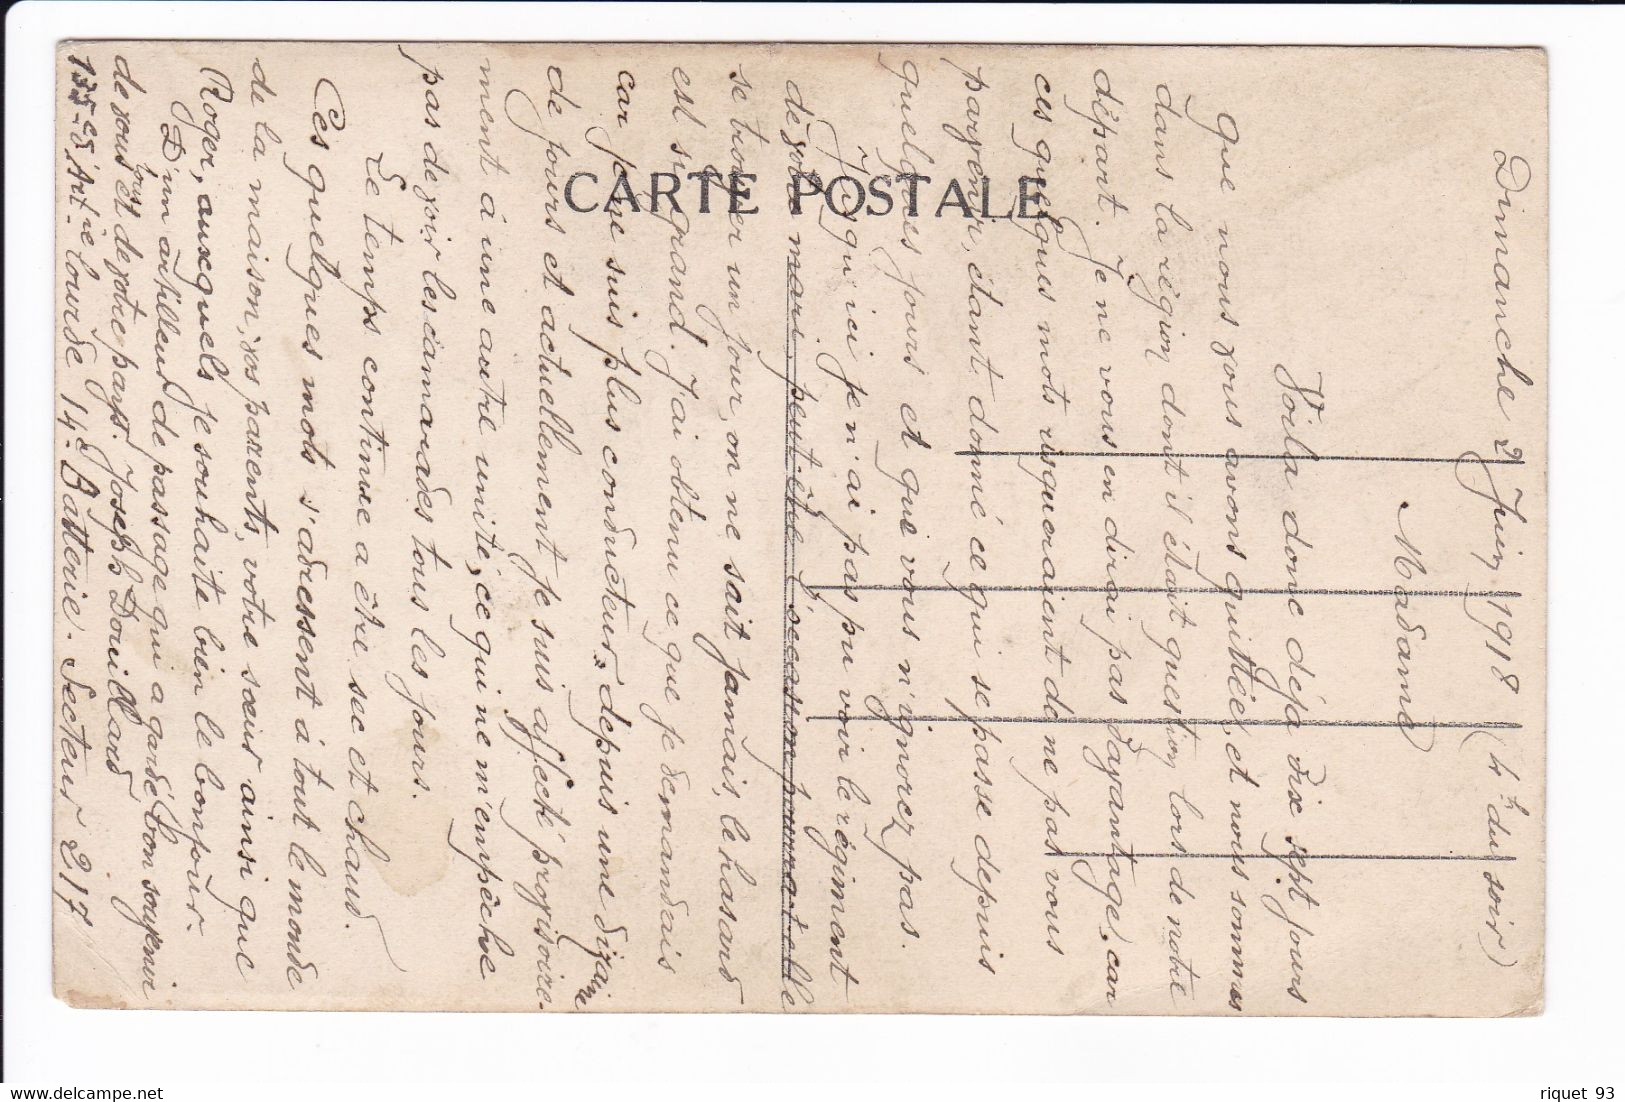 CARTE POSTALE
Dimanche 2 Juin 1918 (4h du soir)
Madame
Voila donc déjà dix sept jours
que nous vous avons quittée, et nous sommes
dans la région dont il était question lors de notre
départ. Je ne vous en dirai pas davantage, car
ces quelques mots risqueraient de ne pas vous
parvenir, étant donné ce qui se passe depuis
quelques jours et que vous n'ignorez pas.
Jusqu'ici je n'ai pas pu voir le régiment
de votre mari, peut-être l'occasion pourrait-elle
se trouver un jour, on ne sait jamais, le hasard
est si grand. J'ai obtenu ce que je demandais
car je ne suis plus conducteur, depuis une dizaine
de jours et actuellement je suis affecté provisoire-
ment à une autre unité, ce qui ne m'empêche
pas de voir les camarades tous les jours.
Le temps continue a être sec et chaud.
Ces quelques mots s'adressent à tout le monde
de la maison, vos parents, votre sœur ainsi que
Roger, auxquels je souhaite bien le bonjour.
D'un artilleur de passage qui a gardé bon souvenir
de vous tous et de votre pays. Joseph Douillard
135e d'Artie lourde 14e Batterie. Secteur 217
riquet 93